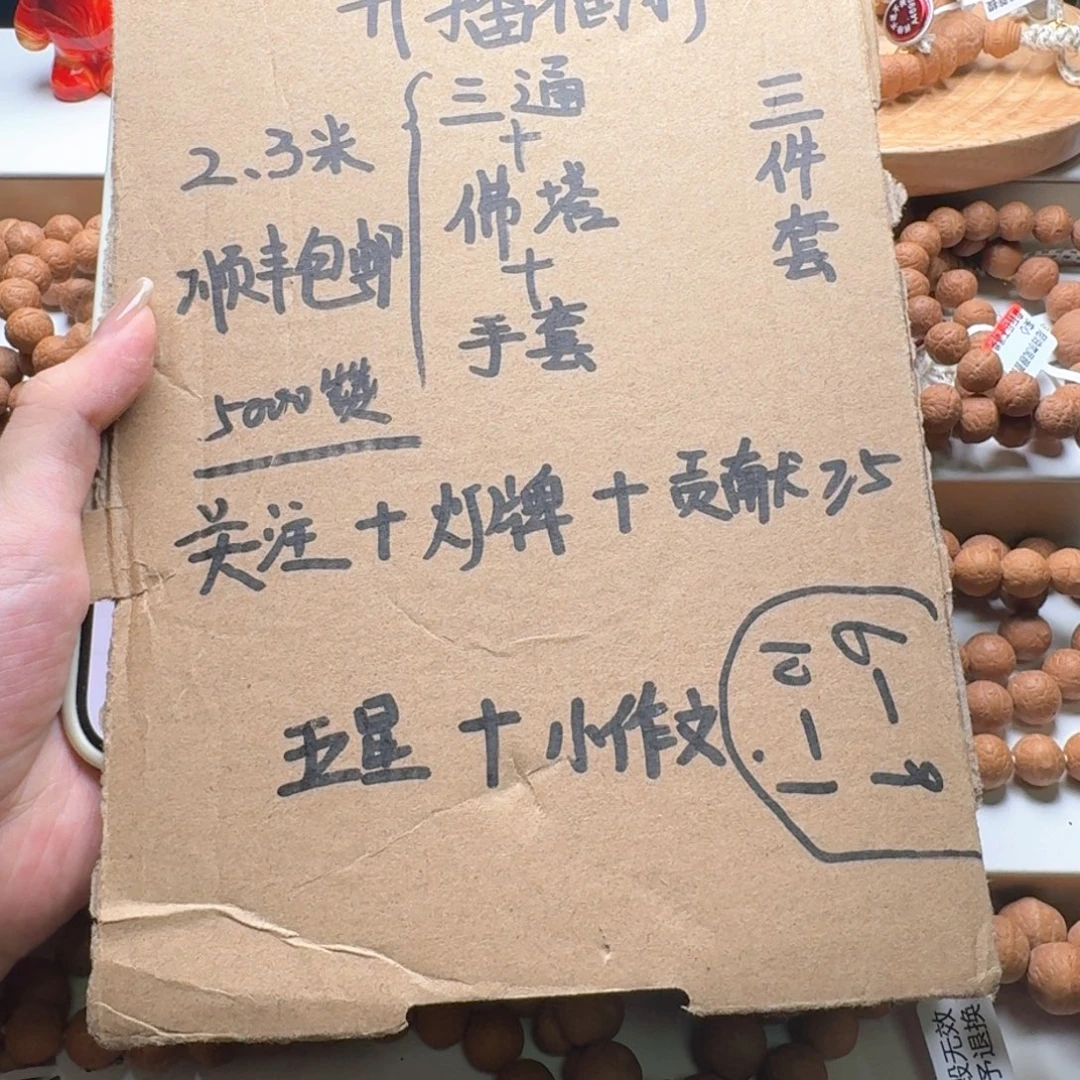 开播福利
2.3米
顺丰包邮
5000赞
三通
+
佛塔
+
手套
三件套
关注+灯牌+贡献≥5
五星+小作文
无效
予退换